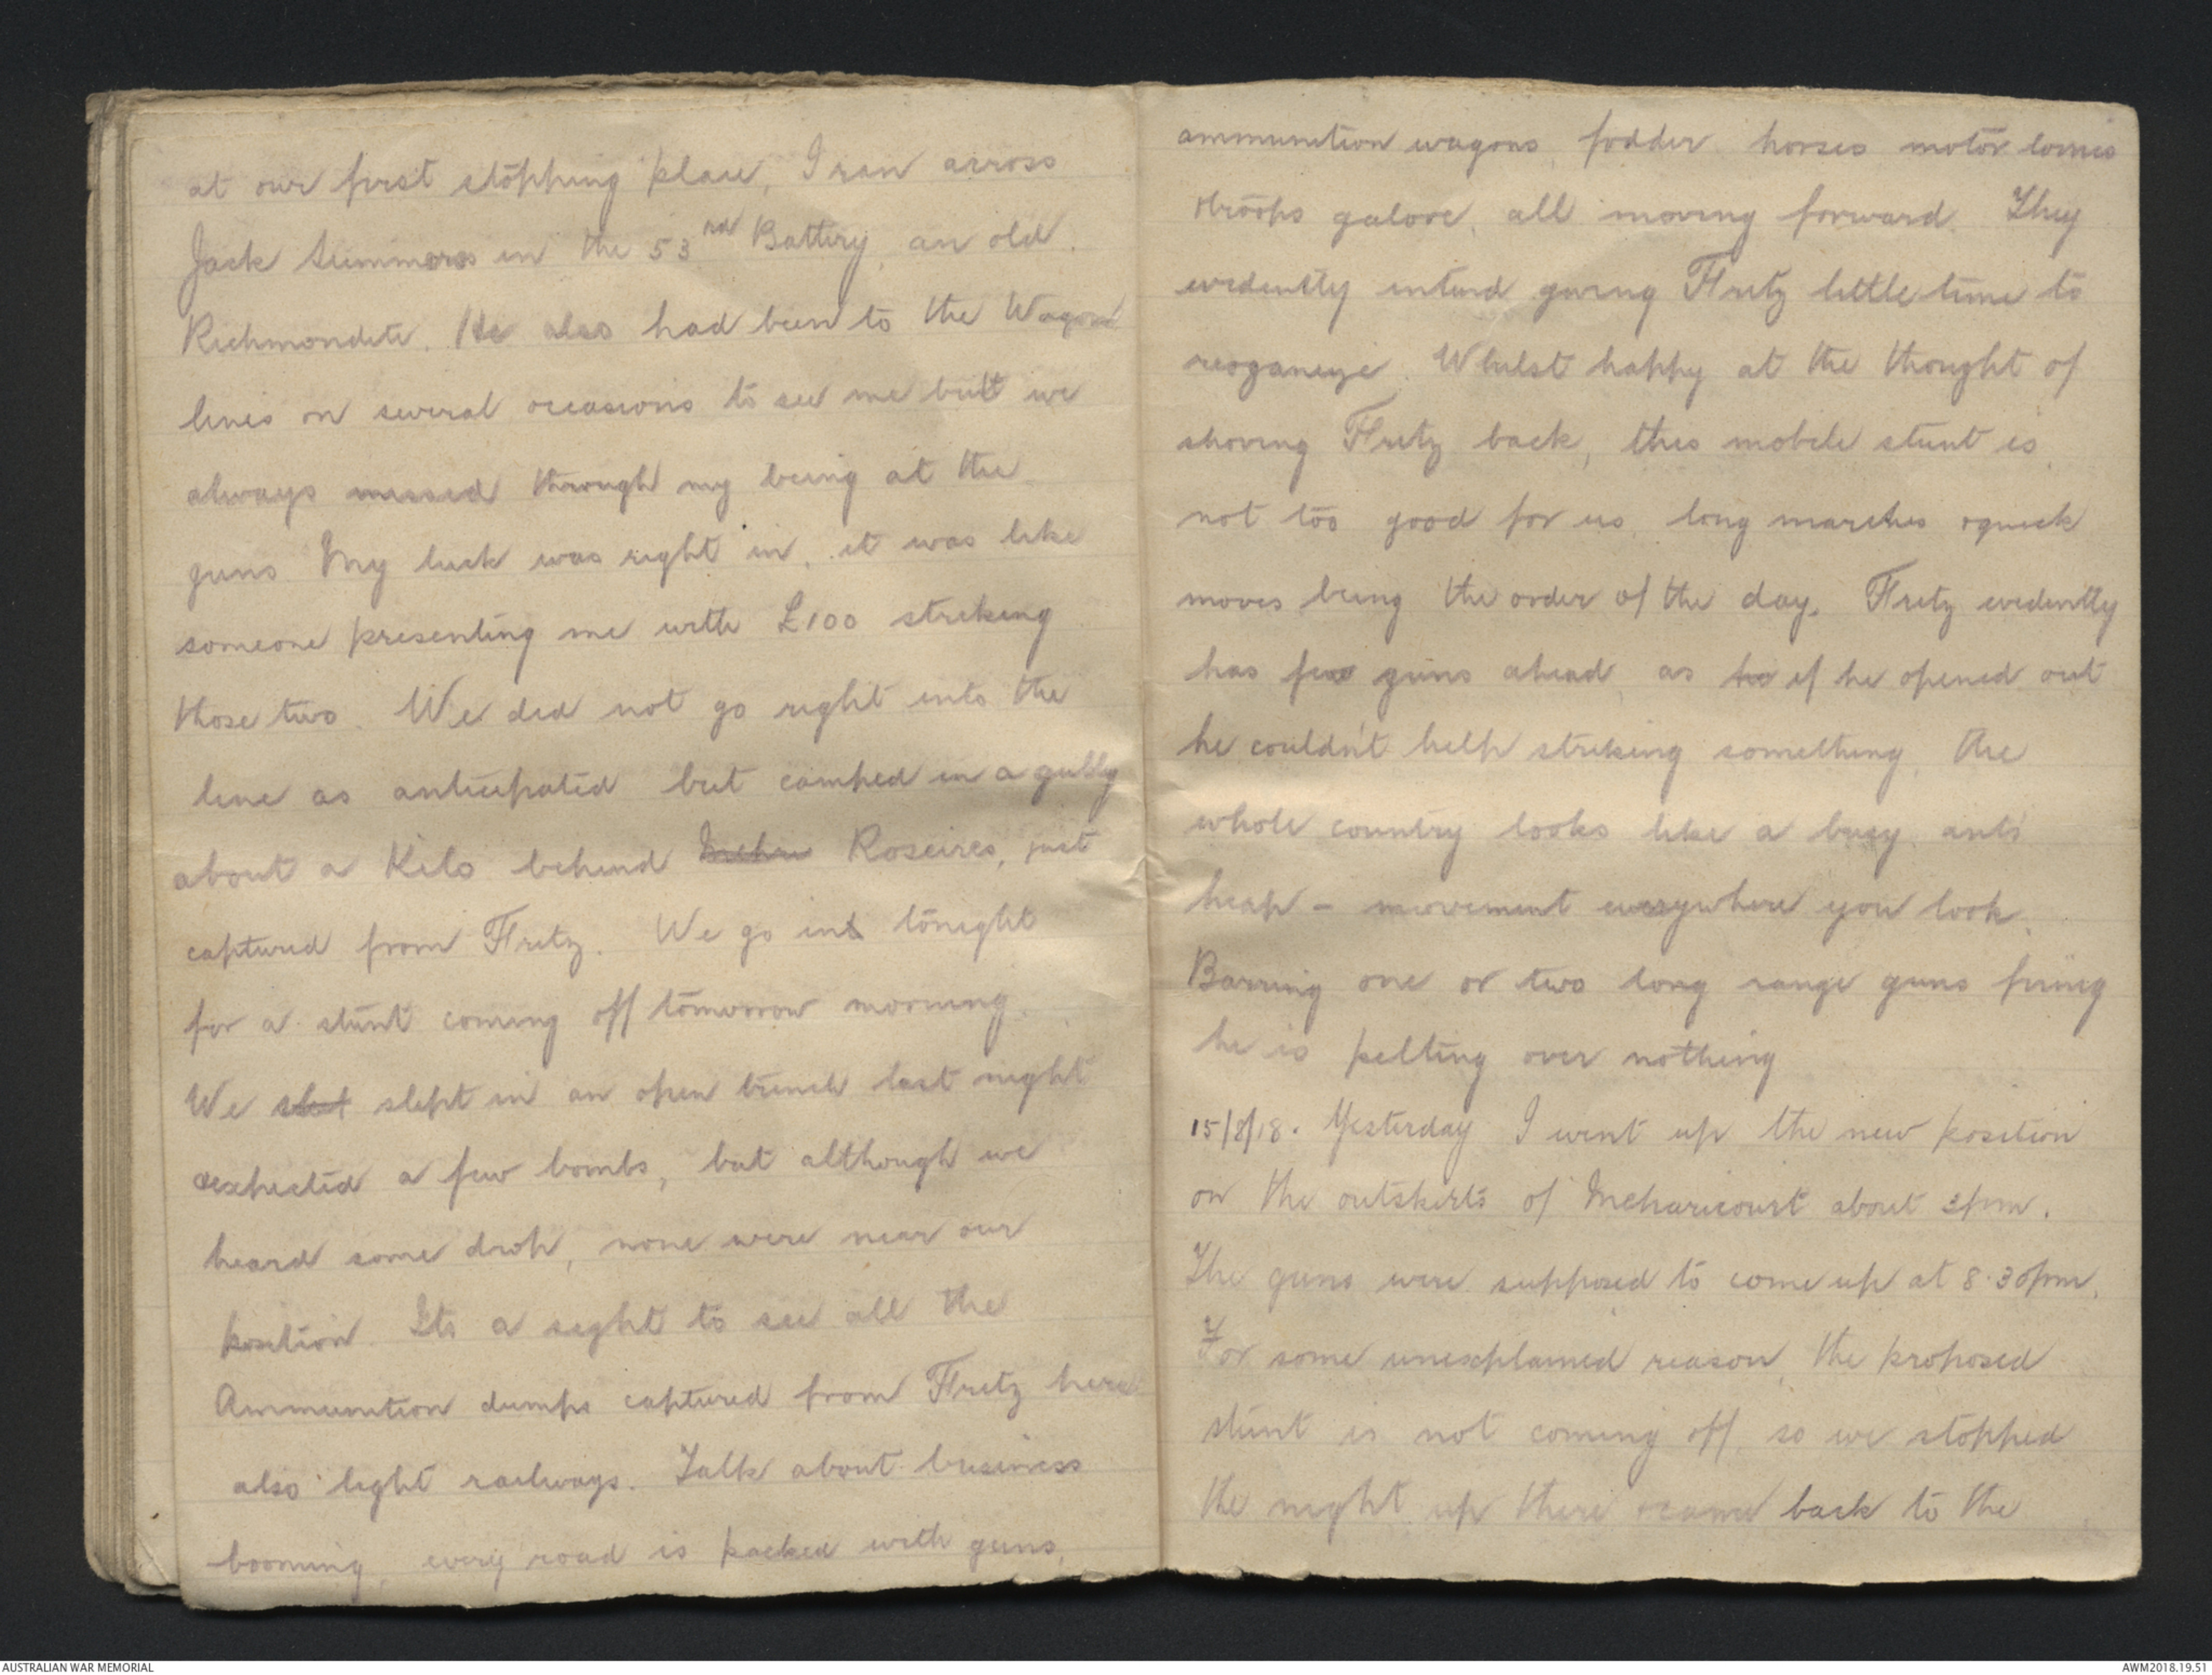 at our first stopping place, I ran across
Jack Summers in the 53rd Battery, an old
Richmondite. He also had been to the Wagon
lines on several occasions to see me but we
always missed through my being at the
guns. My luck was right in, it was like
someone presenting me with £100 striking
those two. We did not go right into the
line as anticipated but camped in a gully
about a Kilo behind Roseires, just
captured from Fritz. We go in tonight
for a stunt coming off tomorrow morning.
We slept in an open trench last night
expected a few bombs, but although we
heard some drop, none were near our
position. Its a sight to see all the
Ammunition dumps captured from Fritz here
also light railways. Talk about business
booming, every road is packed with guns,
ammunition wagons, fodder horses motor lorries
troops galore, all moving forward. They
evidently intend giving Fritz little time to
reoganize. Whilst happy at the thought of
shoving Fritz back, this mobile stunt is
not too good for us, long marches & quick
moves being the order of the day. Fritz evidently
has few guns ahead, as if he opened out
he couldn't help striking something, the
whole country looks like a busy ants
heap - movement everywhere you look.
Barring one or two long range guns firing
he is pelting over nothing
15/8/18. Yesterday I went up the new position
on the outskirts of Meharicourt about pm.
The guns were supposed to come up at 8.30pm.
For some unexplained reason, the proposed
stunt is not coming off, so we stopped
the night up there & came back to the
AUSTRALIAN WAR MEMORIAL
AWM2018.19.51